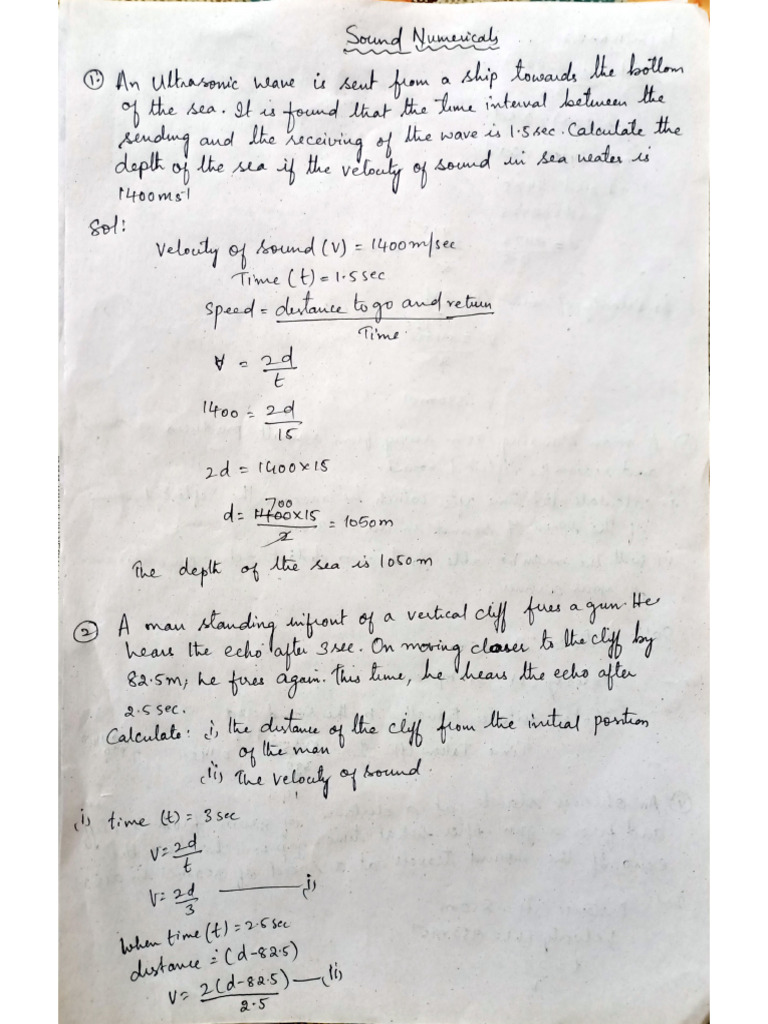 Sound Numericals
① An Ultrasonic wave is sent from a ship towards the bottom
of the sea. It is found that the time interval between the
sending and the receiving of the wave is 1.5 sec. Calculate the
depth of the sea if the velocity of sound in sea water is
1400ms-1
Sol:
Velocity of sound (V) = 1400m/sec
Time (t) = 1.5 sec
Speed = distance to go and return
Time
V = 2d
t
1400 = 2d
15
2d = 1400×15
700
d = 1400×15 = 1050m
2
The depth of the sea is 1050m
② A man standing infront of a vertical cliff fires a gun. He
hears the echo after 3sec. On moving closer to the cliff by
82.5m, he fires again. This time, he hears the echo after
2.5 sec.
Calculate: i, the distance of the cliff from the initial position
of the man
(ii) The velocity of sound.
(i) time (t) = 3 sec
V = 2d
t
V = 2d ——— (i)
3
When time (t) = 2.5sec
distance = (d-82.5)
V = 2(d-82.5) — (ii)
2.5